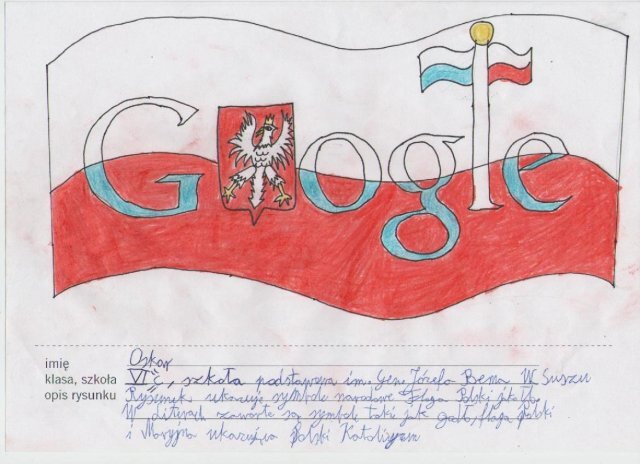 Google
imię Oskar
klasa, szkoła VI c, szkoła podstawowa im. Gen. Józefa Bema W Suszu
opis rysunku Rysunek ukazuje symbole narodowe Flaga Polski jako tło.
W literach zawarte są symbole takie jak godło, flaga polski
i Maryjna ukazująca Polski Katolicyzm